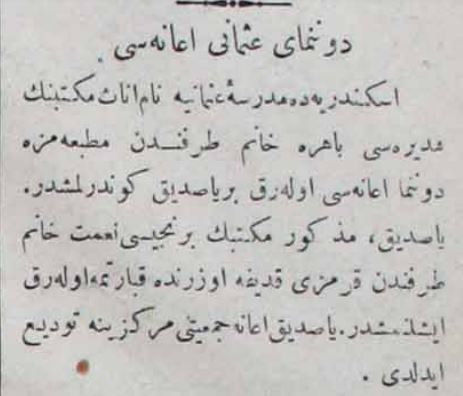 دوننمای عثمانی اعانه‌سی
اسكندریه‌ده مدرسۀ عثمانیه نام اناث مكتبنك
مدیره‌سی باهره خانم طرفندن مطبعه‌مزه
دوننما اعانه‌سی اوله‌رق بریاصدیق كوندرلمشدر.
یاصدیق، مذكور مكتبك برنجیسی نعمت خانم
طرفندن قرمزی قدیفه اوزرنده قبارتمه اوله‌رق
ایشلنمشدر. یاصدیق اعانه جمعیتی مركزینه تودیع
ایدلدی .